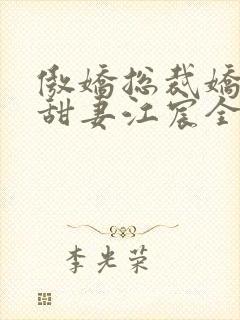 傲娇总裁娇
甜妻江宸全
李光荣